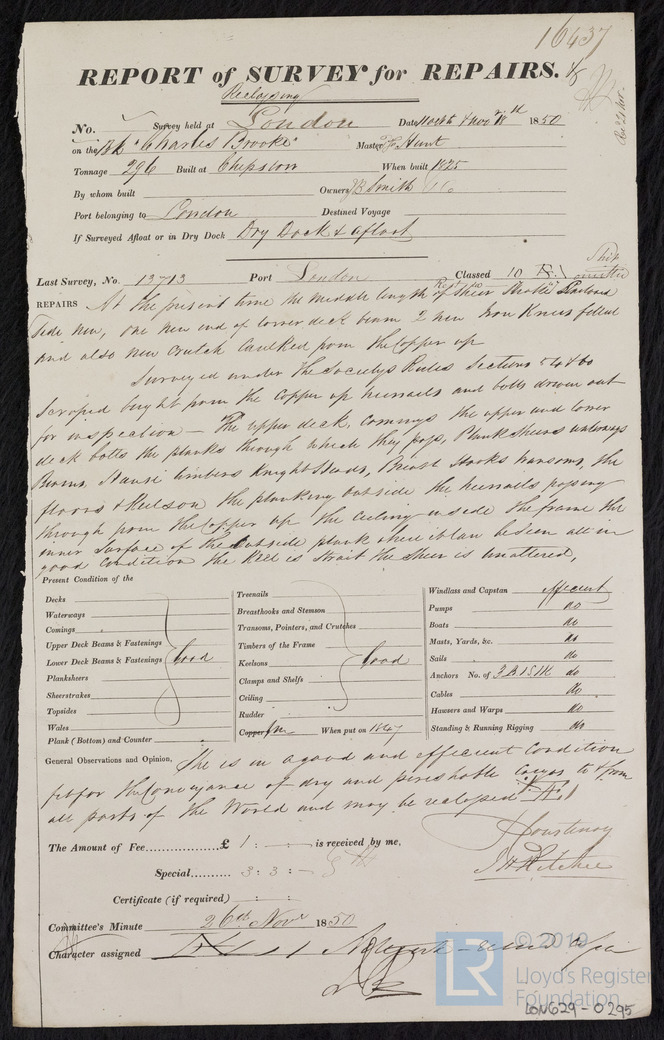 16437
REPORT of SURVEY for REPAIRS.
Reclassing
No. Survey held at London Date 18th 1850
on the Bk "Charles Brooke" Master Hunt
Tonnage 296 Built at Chepstow When built 1825
By whom built Owners JB Smith
Port belonging to London Destined Voyage
If Surveyed Afloat or in Dry Dock Dry Dock & afloat
Last Survey, No. 13713 Port London Classed 10
REPAIRS At the present time the middle length of Sheer Strake Larboard
side new, one new end of lower deck beam 2 new Iron Knees fitted
and also new crutch Caulked from the Copper up
Surveyed under the Societys Rules Sections 54 & 60
Scraped bright from the Copper up treenails and bolts driven out
for inspection - The upper deck, comings the upper and lower
deck bolts the planks through which they pass, Planksheers waterways
Beams, Hause timbers Knight Heads, Breast Hooks transoms, the
floors & Keelson the planking outside the treenails passing
through from the Copper up the ceiling inside the frame the
inner surface of the outside plank where it can be seen all in
good condition the Keel is strait the sheer is unaltered,
Present Condition of the
Decks
Waterways
Comings
Upper Deck Beams & Fastenings
Lower Deck Beams & Fastenings Good
Planksheers
Sheerstrakes
Topsides
Wales
Plank (Bottom) and Counter
Treenails
Breasthooks and Stemson
Transoms, Pointers, and Crutches
Timbers of the Frame
Keelsons Good
Clamps and Shelfs
Ceiling
Rudder
Copper When put on 1847
Windlass and Capstan efficient
Pumps do
Boats do
Masts, Yards, &c. do
Sails do
Anchors No. of 3 B 1 S 1 K do
Cables do
Hawsers and Warps do
Standing & Running Rigging do
General Observations and Opinion, She is in a good and efficient Condition
fit for the Conveyance of dry and perishable cargos to & from
all parts of the World and may be reclassed Æ 1
The Amount of Fee £ 1 : - : - is received by me,
J Courtenay
Special 3 : 3 : -
J H Ritchie
Certificate (if required)
Committee's Minute 26th Novr 1850
Character assigned Æ 1
© 2019
LR
Lloyd's Register
Foundation
LON629-0295